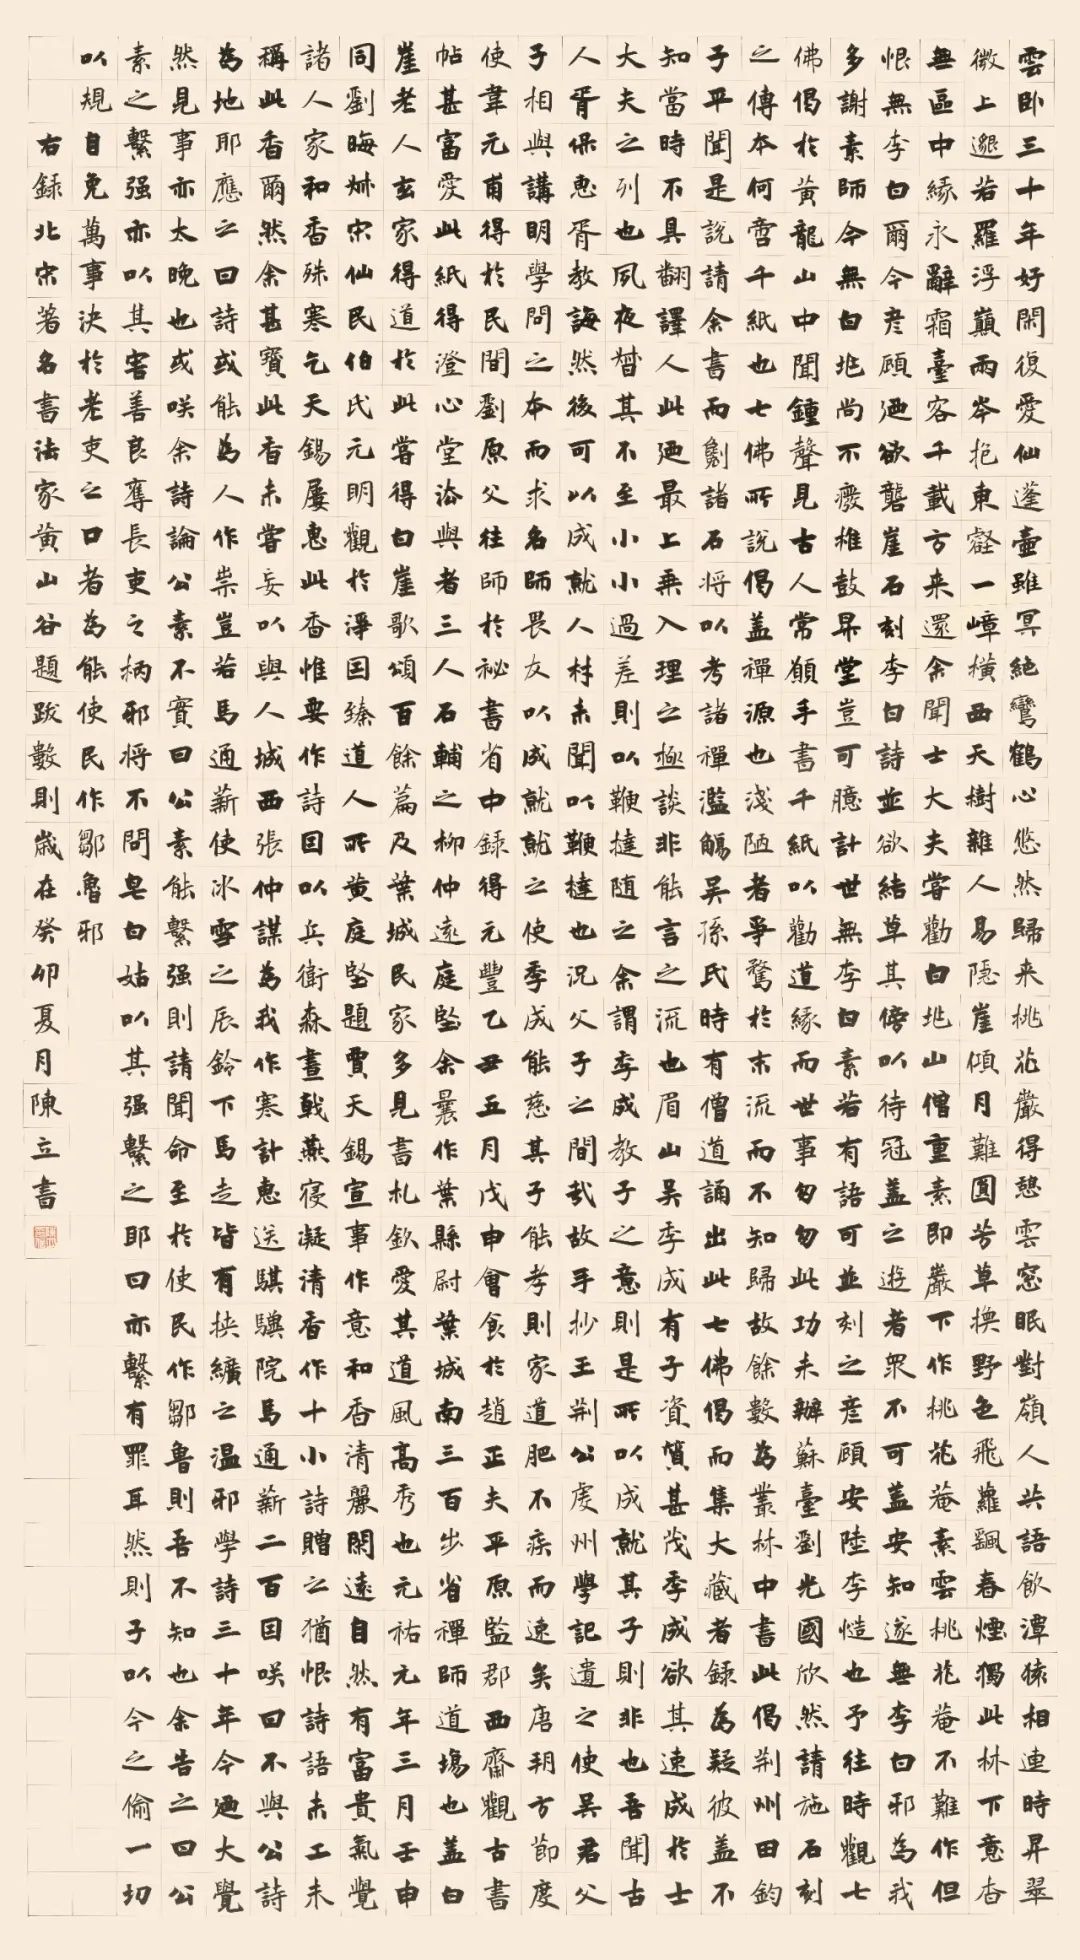 雲卧三十年好閑復愛仙蓬壺雖冥絶鸞鶴心悠然歸来桃花巖得憩雲窓眠對嶺人共語飲潭猿相連時昇翠
微上邈若羅浮巔兩岑抱東壑一嶂橫西天樹雜人易隱崖傾月難圓芳草換野色飛蘿飄春煙獨此林下意杳
無區中緣永辭霜臺客千載方来還余聞士大夫嘗勸白兆山僧重素即巖下作桃花菴素雲桃花菴不難作但
恨無李白爾今彦顧廼欲礱崖石刻李白詩並欲結草其傍以待冠蓋之遊者衆不可盖安知遂無李白邪為我
多謝素師今無白兆尚不癈椎鼓昇堂豈可臆計世無李白素若有語可並刻之彦顧安陸李愭也予往時觀七
佛偈於黃龍山中聞鍾聲見古人常願手書千紙以勸道緣而世事匆匆此功未辦蘇臺劉光國欣然請施石刻
之傳本何啻千紙也七佛所説偈盖禪源也淺陋者爭鶩於末流而不知歸故餘數為叢林中書此偈荆州田鈞
子平聞是說請余書而劖諸石将以考諸禪濫觴吴孫氏時有僧道誦出此七佛偈而集大藏者録為疑彼盖不
知當時不具翻譯人此廼最上乗入理之極談非能言之流也眉山吴季成有子資質甚茂季成欲其速成於士
大夫之列也夙夜督其不至小小過差則以鞭撻随之余謂季成教子之意則是所以成就其子則非也吾聞古
人胥保惠胥教誨然後可以成就人材未聞以鞭撻也况父子之間哉故手抄王荆公虔州學記遺之使吴君父
子相與講明學問之本而求名師畏友以成就就之使季成能慈其子能孝則家道肥不疾而速矣唐朔方節度
使韋元甫得於民間劉原父往師於秘書省中録得元豐乙丑五月戊申會食於趙正夫平原監郡西齋觀古書
帖甚富愛此紙得澄心堂法與者三人石輔之柳仲遠庭堅余曩作葉縣尉葉城南三百步省禪師道場也盖白
崖老人玄家得道於此嘗得白崖歌頌百餘篇及葉城民家多見書札欽愛其道風高秀也元祐元年三月壬申
同劉晦叔宋仙民伯氏元明觀於淨因臻道人所黄庭堅題賈天錫宣事作意和香清麗閑遠自然有富貴氣覺
諸人家和香殊寒乞天錫屢惠此香惟要作詩因以兵衛森畫戟燕寝凝清香作十小詩贈之猶恨詩語未工未
稱此香爾然余甚寶此香未嘗妄以與人城西張仲謀為我作寒計惠送騏驥院馬通薪二百因咲曰不與公詩
為地耶應之曰詩或能為人作祟豈若馬通薪使冰雪之辰鈴下馬走皆有挟纊之温邪學詩三十年今廼大覺
然見事亦太晚也或咲余詩論公素不實曰公素能繫强則請聞命至於使民作鄒魯則吾不知也余告之曰公
素之繫强亦以其害善良奪長吏之柄邪将不問皂白姑以其强繫之耶曰亦繫有罪耳然則子以今之偷一切
以規自免萬事決於老吏之口者為能使民作鄒魯邪
右録北宋著名書法家黄山谷題跋數則歲在癸卯夏月陳立書